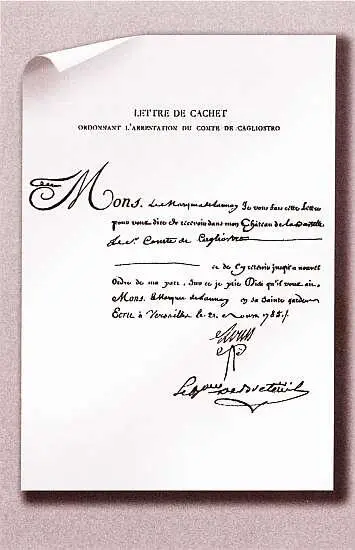 LETTRE DE CACHET
ORDONNANT L'ARRESTATION DU COMTE DE CAGLIOSTRO
Mons. Le Marquis de Launay Je vous fais cette Lettre
pour vous dire de recevoir dans mon Château de la Bastille
Le Sr. Comte de Cagliostro
et de l'y retenir jusqu'à nouvel
Ordre de ma part. Sur ce je prie Dieu qu'il vous ait
Mons. Marquis de Launay en sa Sainte garde
Ecrit à Versailles le 21. 1785./.
Louis
Le Bon De Breteuil